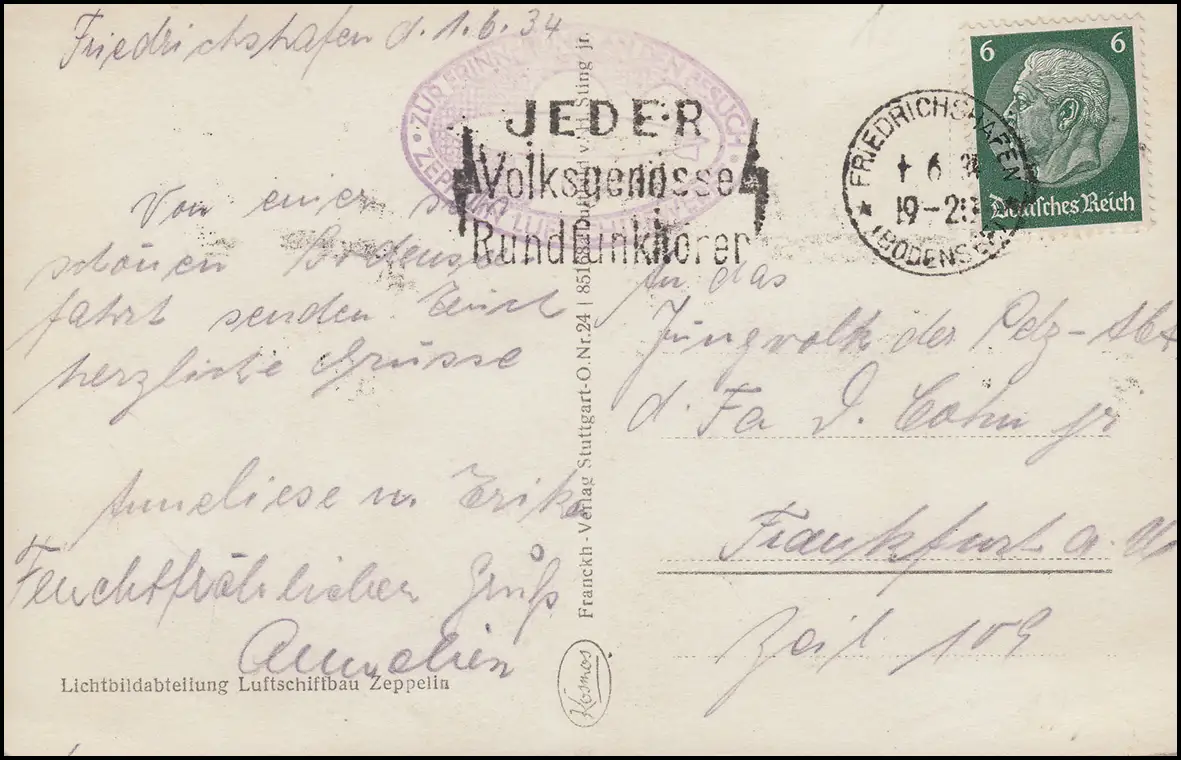 Friedrichshafen d. 1.6.34
Von einer
schönen Bodensee
fahrt senden Euch
herzliche Grüsse
Anneliese u. Erika
Feuchtfröhlichen Gruß
Lichtbildabteilung Luftschiffbau Zeppelin
ZUR ERINNERUNG AN DEN BESUCH
ZEPPELIN
JEDER
Volksgenosse
Rundfunkhörer
Franckh-Verlag Stuttgart-O.Nr.24
Sting jr.
Kosmos
6 6
Deutsches Reich
FRIEDRICHSHAFEN
6 34
19-20
(BODENSEE)
An das
Jungvolk der Pelz-Abt
d. Fa J. Cohn jr
Frankfurt a. M
Zeil 109